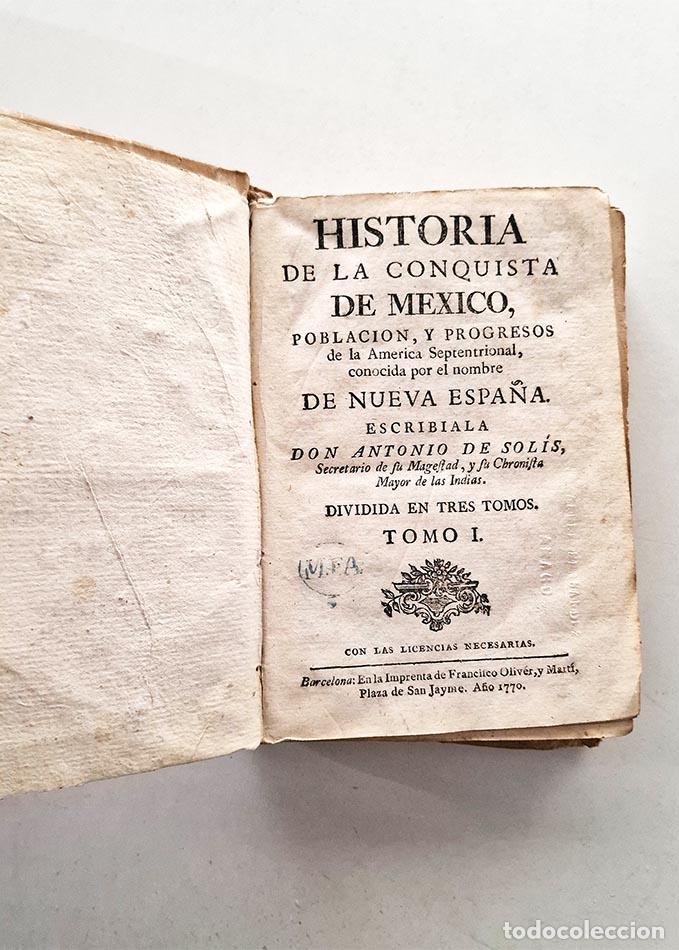 HISTORIA
DE LA CONQUISTA
DE MEXICO,
POBLACION, Y PROGRESOS
de la America Septentrional,
conocida por el nombre
DE NUEVA ESPAÑA.
ESCRIBIALA
DON ANTONIO DE SOLÍS,
Secretario de ſu Mageſtad, y ſu Chroniſta
Mayor de las Indias.
DIVIDIDA EN TRES TOMOS.
TOMO I.
M.F.A.
CON LAS LICENCIAS NECESARIAS.
Barcelona: En la Imprenta de Franciſco Olivér, y Martí,
Plaza de San Jayme. Año 1770.
todocoleccion